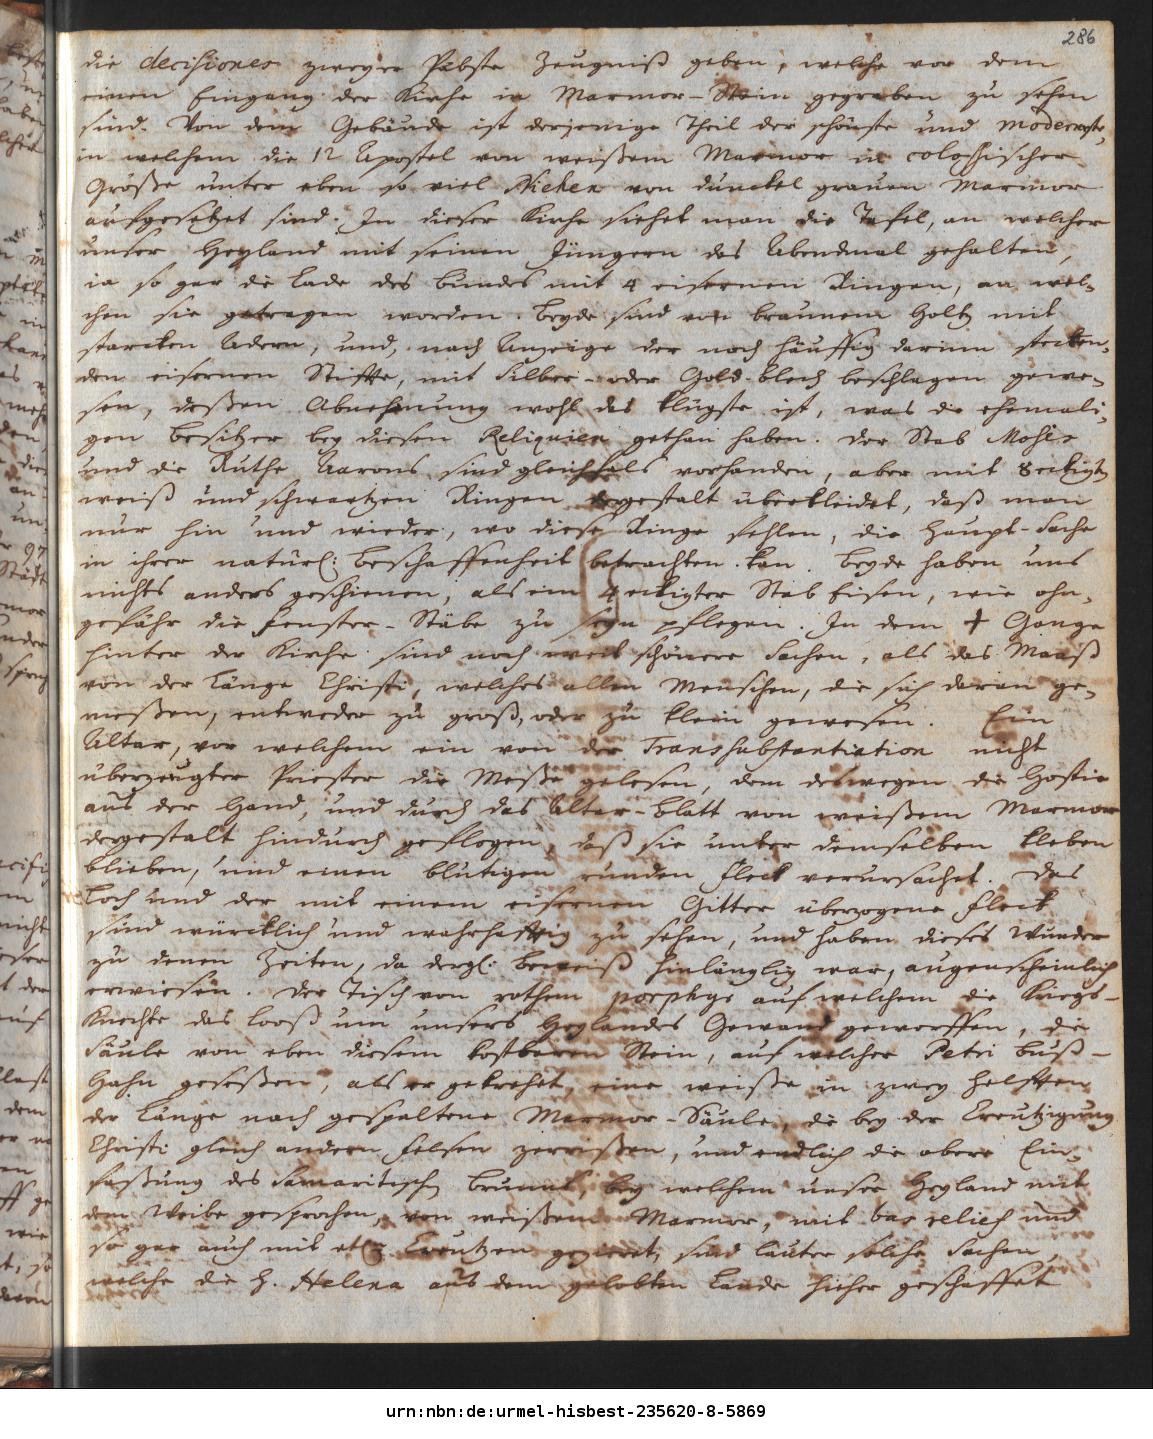 286
die decisiones zweyer Päbste Zeugniß geben, welche vor dem
einen Eingang der Kirche in Marmor-Stein gegraben zu sehen
sind. Von dem Gebäude ist derjenige Theil der schönste und moderneste,
in welchem die 12 Apostel von weißem Marmor in colossischer
Größe unter eben so viel Nichen von dunckel grauen Marmor
aufgesetzet sind. In dieser Kirche siehet man die Tafel, an welcher
unser Heyland mit seinen Jüngern das Abendmal gehalten,
ia so gar die Lade des Bundes mit 4 eisernen Ringen, an wel-
chen sie getragen worden. Beyde sind von braunem Holtz mit
starcken Adern, und, nach Anzeige der noch häuffig darinn stecken-
den eisernen Stiffte, mit Silber- oder Gold-blech beschlagen gewe-
sen, deßen Abnehmung wohl das klügste ist, was die ehemali-
gen Besitzer bey diesen Reliquien gethan haben. Der Stab Mosis
und die Ruthe Aarons sind gleichfals vorhanden, aber mit 8eckigten
weiß und schwartzen Ringen dergestalt überkleidet, daß man
nur hin und wieder, wo diese Ringe fehlen, die Haupt-Sache
in ihrer natürl: Beschaffenheit betrachten kan. Beyde haben uns
nichts anders geschienen, als ein 4 eckigter Stab Eisen, wie ohn-
gefähr die Fenster-Stäbe zu seyn pflegen. In dem + Gange
hinter der Kirche sind noch weit schönere Sachen, als das Maaß
von der Länge Christi, welches allen Menschen, die sich daran ge-
meßen, entweder zu groß, oder zu klein gewesen. Ein
Altar, vor welchem ein von der Transsubstantiation nicht
überzeugter Priester die Meße gelesen, dem deswegen die Hostie
aus der Hand, und durch das Altar-blatt von weißem Marmor
dergestalt hindurch geflogen, daß sie unter demselben kleben
blieben, und einen blutigen runden Fleck verursachet. Das
Loch und der mit einem eisernen Gitter überzogene Fleck
sind würcklich und wahrhafftig zu sehen, und haben dieses Wunder
zu denen Zeiten, da dergl: Beweiß hinlänglig war, augenscheinlich
erwiesen. Der Tisch von rothem porphyr auf welchem die Kriegs-
Knechte das Looß um unsers Heylandes Gewand geworffen, die
Säule von eben diesem kostbaren Stein, auf welcher Petri Buß-
Hahn geseßen, als er gekrehet, eine weiße in zwey Helfften
der Länge nach gespaltene Marmor-Säule, die bey der Creutzigung
Christi gleich andern Felsen zerrißen, und endlich die obere Ein-
faßung des Samaritisch Brunns, bey welchem unser Heyland mit
dem Weibe gesprochen, von weißem Marmor, mit bas relief und
so gar auch mit etl: Creutzen gezieret, sind lauter solche Sachen,
welche die H. Helena aus dem gelobten Lande hieher geschaffet
urn:nbn:de:urmel-hisbest-235620-8-5869